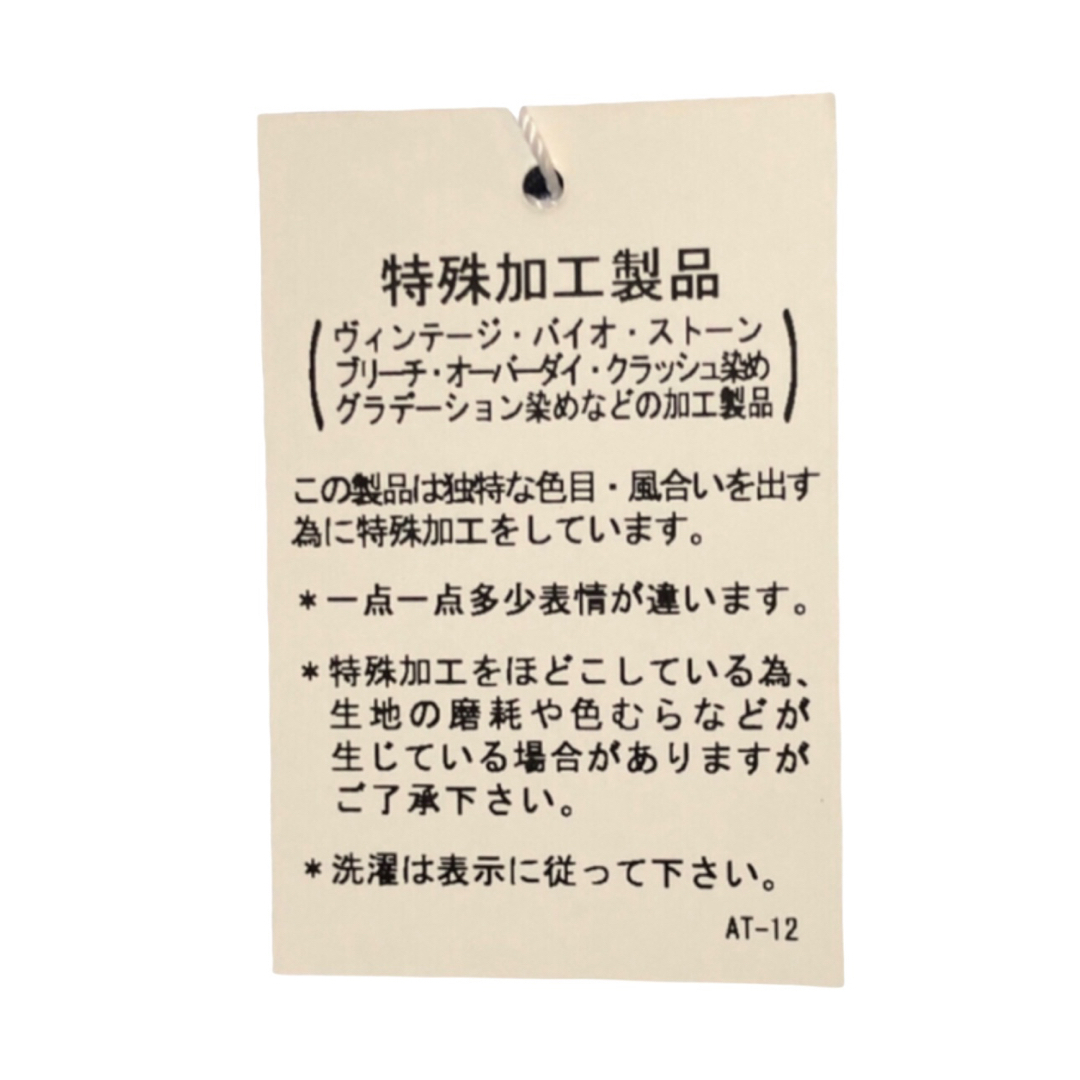 特殊加工製品
(ヴィンテージ・バイオ・ストーン
ブリーチ・オーバーダイ・クラッシュ染め
グラデーション染めなどの加工製品)
この製品は独特な色目・風合いを出す
為に特殊加工をしています。
*一点一点多少表情が違います。
*特殊加工をほどこしている為、
生地の磨耗や色むらなどが
生じている場合がありますが
ご了承下さい。
*洗濯は表示に従って下さい。
AT-12